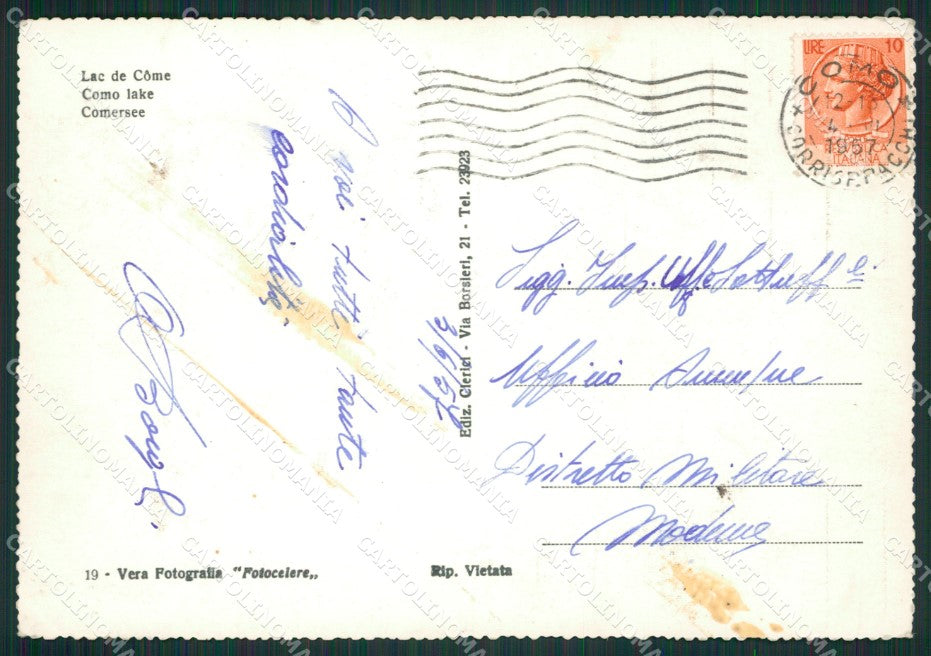 Lac de Côme
Como lake
Comersee
LIRE 10
COMO
12
1957
CORRISP. PACCHI
ITALIANA
A voi tutti tante
cordialità.
3/6/57
Ediz. Clerici - Via Borsieri, 21 - Tel. 23923
Sigg.
Ufficio
Distretto Militare
Modena
19 - Vera Fotografia "Fotocelere„
Rip. Vietata
CARTOLINOMANIA